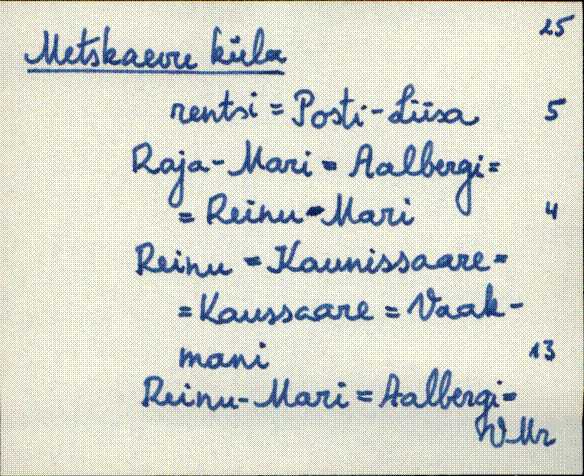 25
Metskaevu küla
rentsi = Posti-Liisa 5
Raja-Mari = Aalbergi =
= Reinu-Mari 4
Reinu = Kaunissaare =
= Kaussaare = Vaak-
mani 13
Reinu-Mari = Aalbergi =